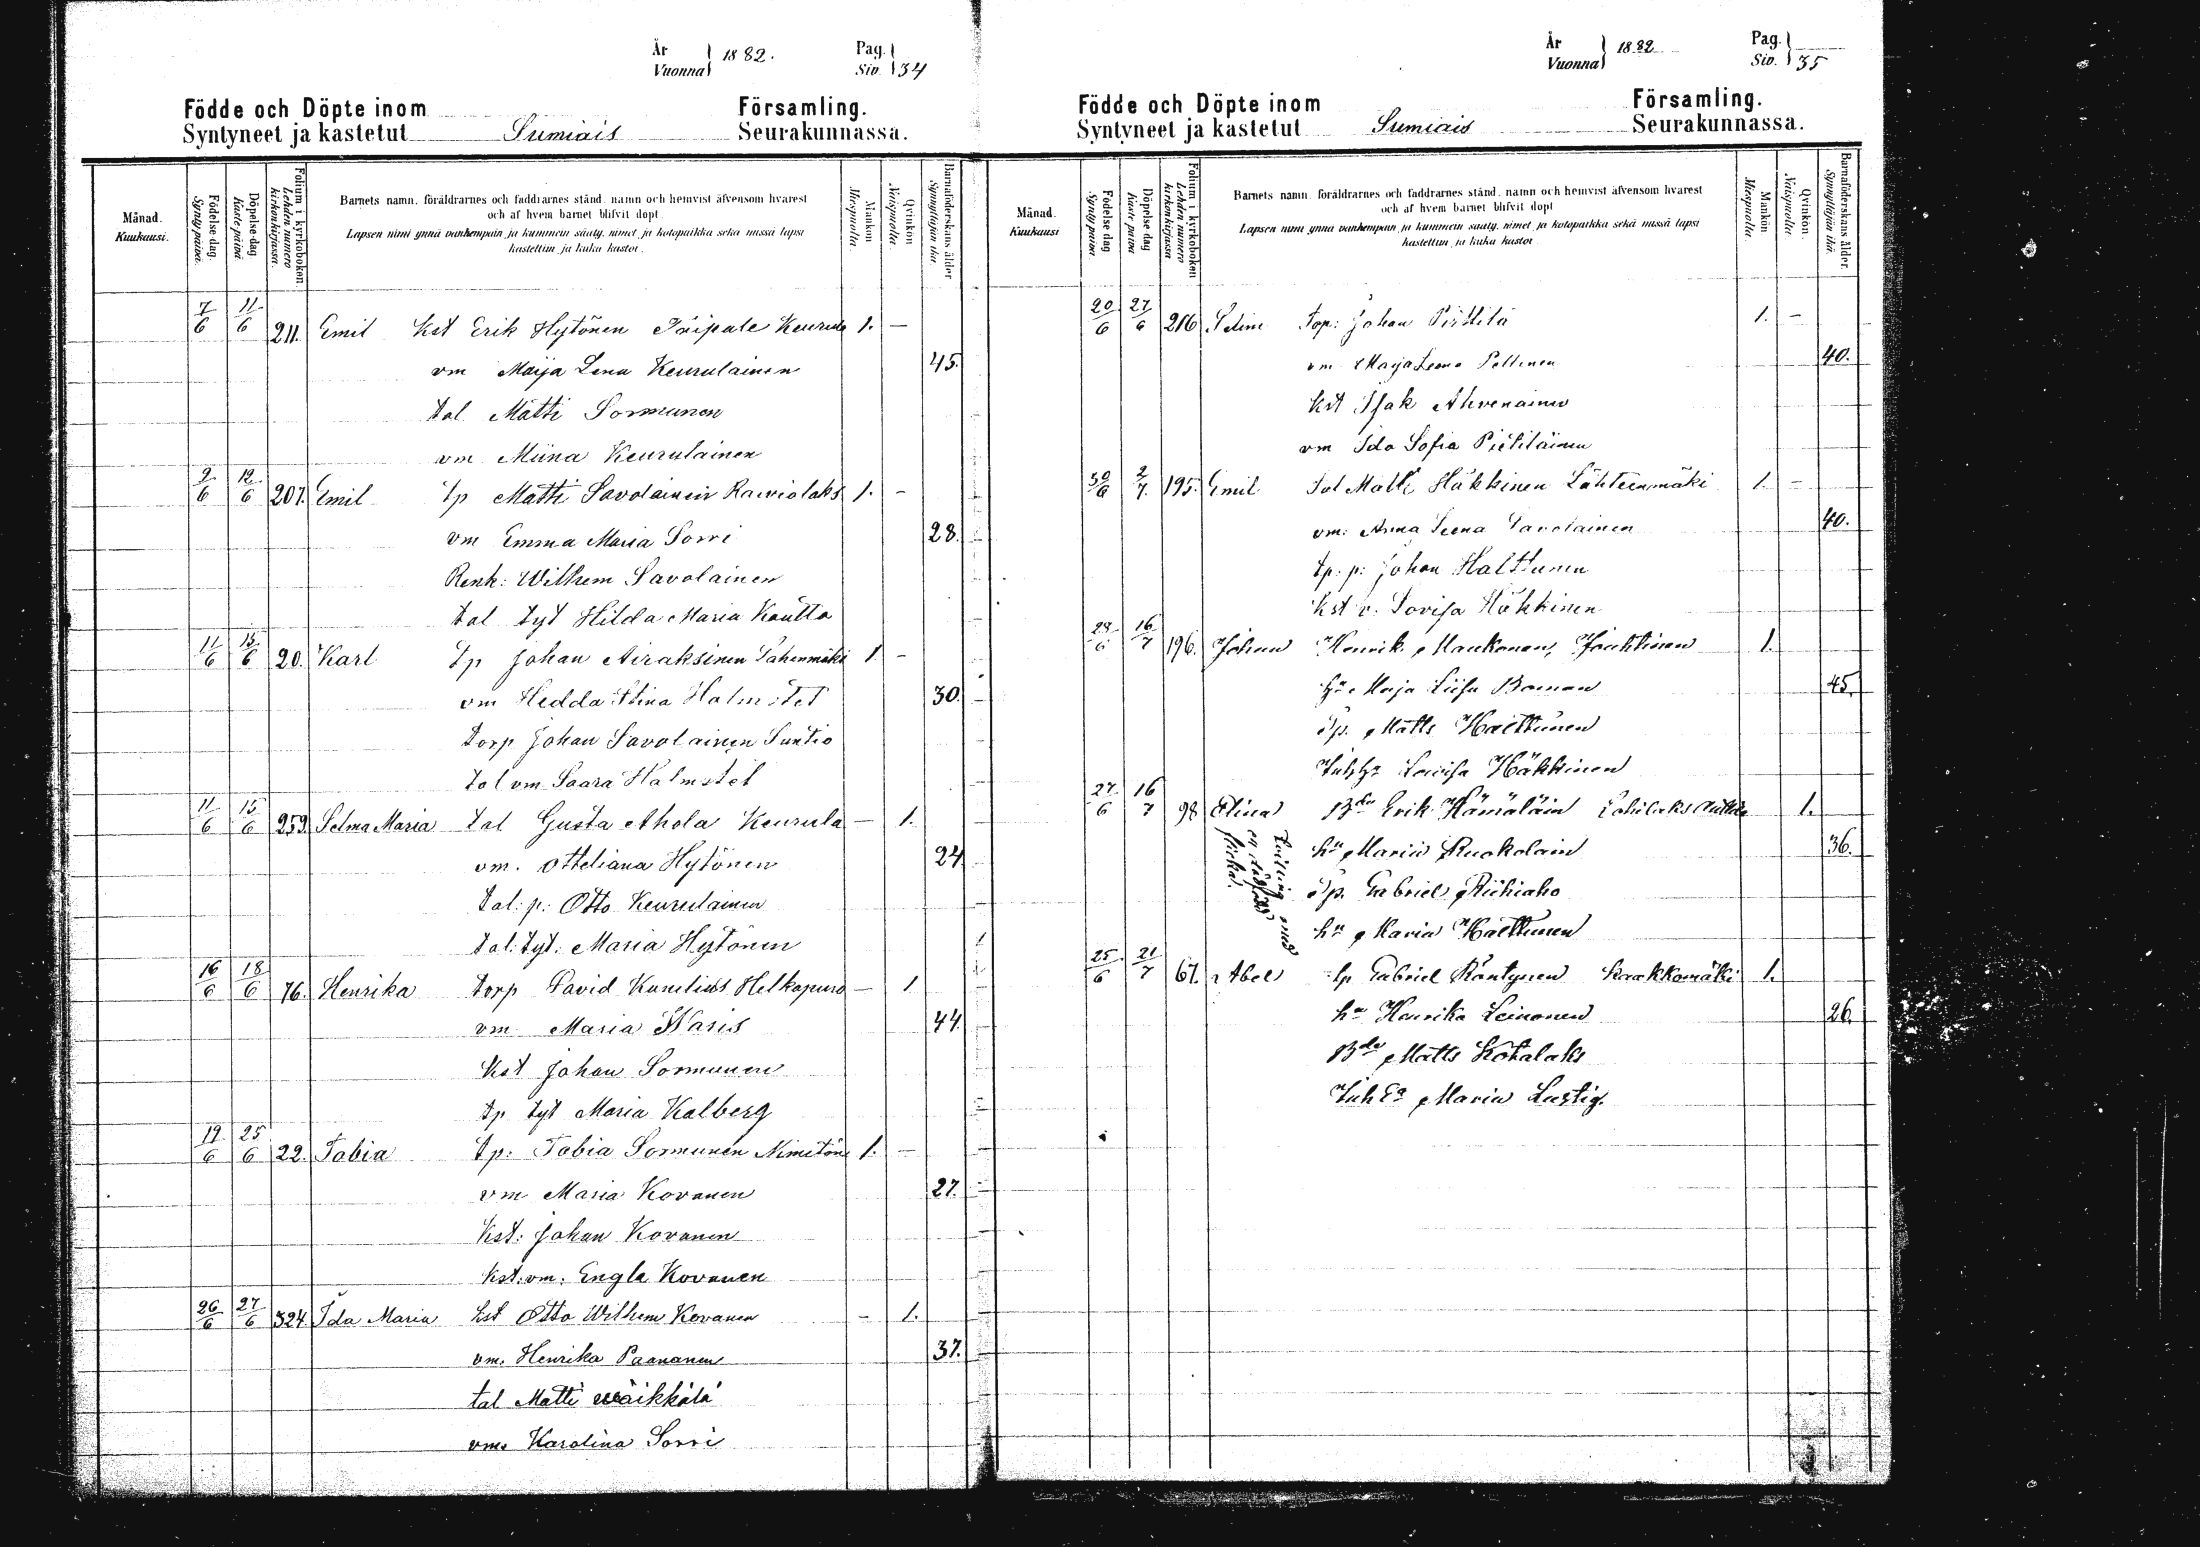 År
Vuonna 1882.
Pag.
Siv. 34
Födde och Döpte inom Församling.
Syntyneet ja kastetut Sumiais Seurakunnassa.
Månad.
Kuukausi.
Födelse dag.
Synty päivä.
Döpelse dag
Kaste päivä.
Folium i kyrkoboken.
Lehden numero kirkonkirjassa.
Barnets namn. föräldrarnes och faddrarnes stånd. namn och hemvist äfvensom hvarest
och af hvem barnet blifvit döpt
Lapsen nimi ynnä vanhempain ja kummein sääty, nimet, ja kotopaikka sekä missä lapsi
kastettiin ja kuka kastoi.
Mankön
Miespuolta.
Qvinkön
Naispuolta.
Barnaföderskans ålder
Synnyttäjän ikä.
7/6 11/6 211. Emil Kst Erik Hytönen Paipale 1. —
vm Maija Lena Keurulainen 45.
tal Matti Sormunen
vm Miina Keurulainen
9/6 12/6 207. Emil tp Matti Savolainen 1. -
vm Emma Maria Sorri 28.
Renk: Wilhem Savolainen
tal tyt Hilda Maria Kautto
11/6 15/6 20. Karl tp Johan Airaksinen 1 -
vm Hedda Stina Halmstet 30.
torp Johan Savolainen Suntio
tal vm Saara Halmstet
11/6 15/6 259. Selma Maria tal Gusta Ahola Keurula — 1.
vm. Otteliana Hytönen 24
tal: p: Otto Keurulainen
tal: tyt: Maria Hytönen
16/6 18/6 76. Henrika torp David — 1
vm Maria Waris 44.
Kst Johan Sormunen
tp tyt Maria Kalberg
19/6 25/6 22. Tobia tp: Tobia Sormunen 1. —
vm Maria Kovanen 27.
Kst: Johan Kovanen
Kst: vm: Engla Kovanen
26/6 27/6 324 Ida Maria kst Otto Wilhem Kovanen - 1.
vm. Henrika Paananen 37.
tal Matti waikkala
vm. Karolina Sorri
År
Vuonna 1882
Pag.
Siv. 35
Födde och Döpte inom Församling.
Syntyneet ja kastetut Sumiais Seurakunnassa.
Månad.
Kuukausi
Födelse dag
Synty päivä.
Döpelse dag
Kaste päivä
Folium i kyrkoboken
Lehden numero kirkonkirjassa
Barnets namn. föräldrarnes och faddrarnes stånd. namn och hemvist äfvensom hvarest
och af hvem barnet blifvit döpt
Lapsen nimi ynnä vanhempain ja kummein sääty, nimet ja kotopaikka sekä missä lapsi
kastettiin ja kuka kastoi
Mankön
Miespuolta.
Qvinkön.
Naispuolta.
Barnaföderskans ålder.
Synnyttäjän ikä.
20/6 27/6 216 Johan 1. -
vm Maija Leena 40.
Kst Isak Ahvenainen
vm Ida Sofia Pietiläinen
30/6 2/7 195. Emil Tal Matti Häkkinen Lähteenmäki 1. -
vm: Anna Leena Savolainen 40.
tp: p: Johan Halttunen
Kst v. Lovisa Häkkinen
28/6 16/7 196. Johan Henrik Maukonen, 1.
Maja Liisa Boman 45.
Matts Halttunen
Lovisa Häkkinen
27/6 16/7 98 Elina Bde Erik Hämäläin 1.
Tvilling med
en dödfödd
flicka.
hu Maria Ruokolain 36.
Gabriel Riihiaho
hu Maria Halttunen
25/6 21/7 67. Abel tp Gabriel Räntynen 1.
hu Henrika Leinonen 26.
Bde Matts Kotalaks
Maria Lustig.